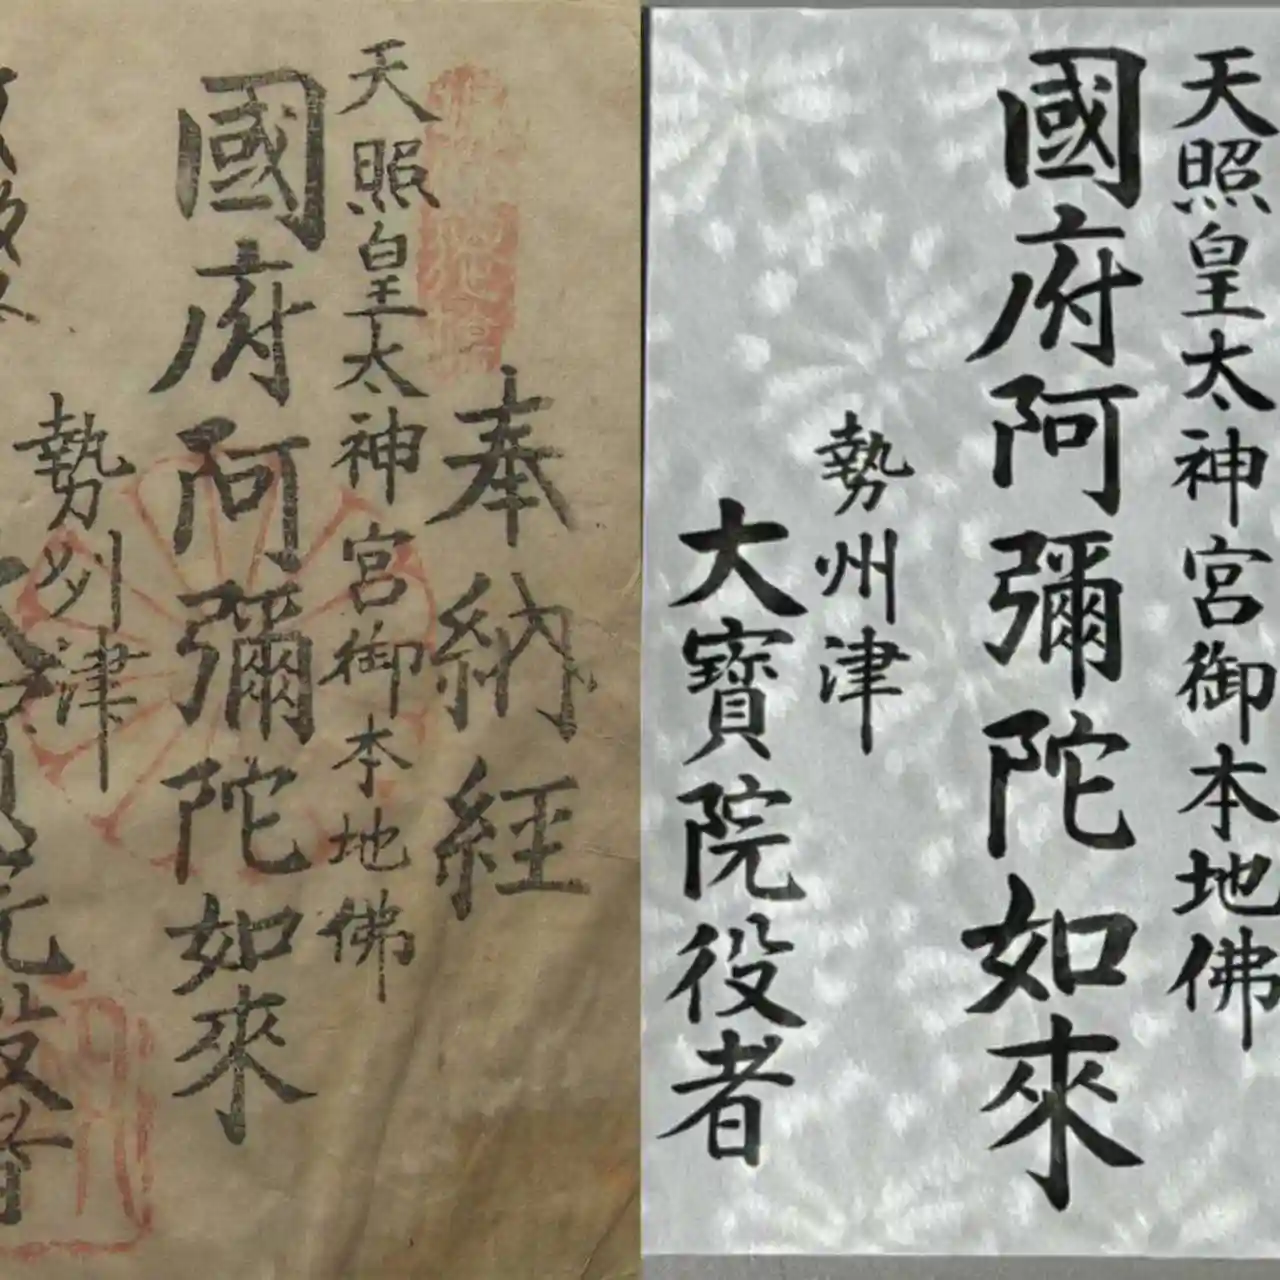 奉納経
天照皇太神宮御本地佛
國府阿彌陀如來
勢州津
天照皇太神宮御本地佛
國府阿彌陀如來
勢州津
大寳院役者